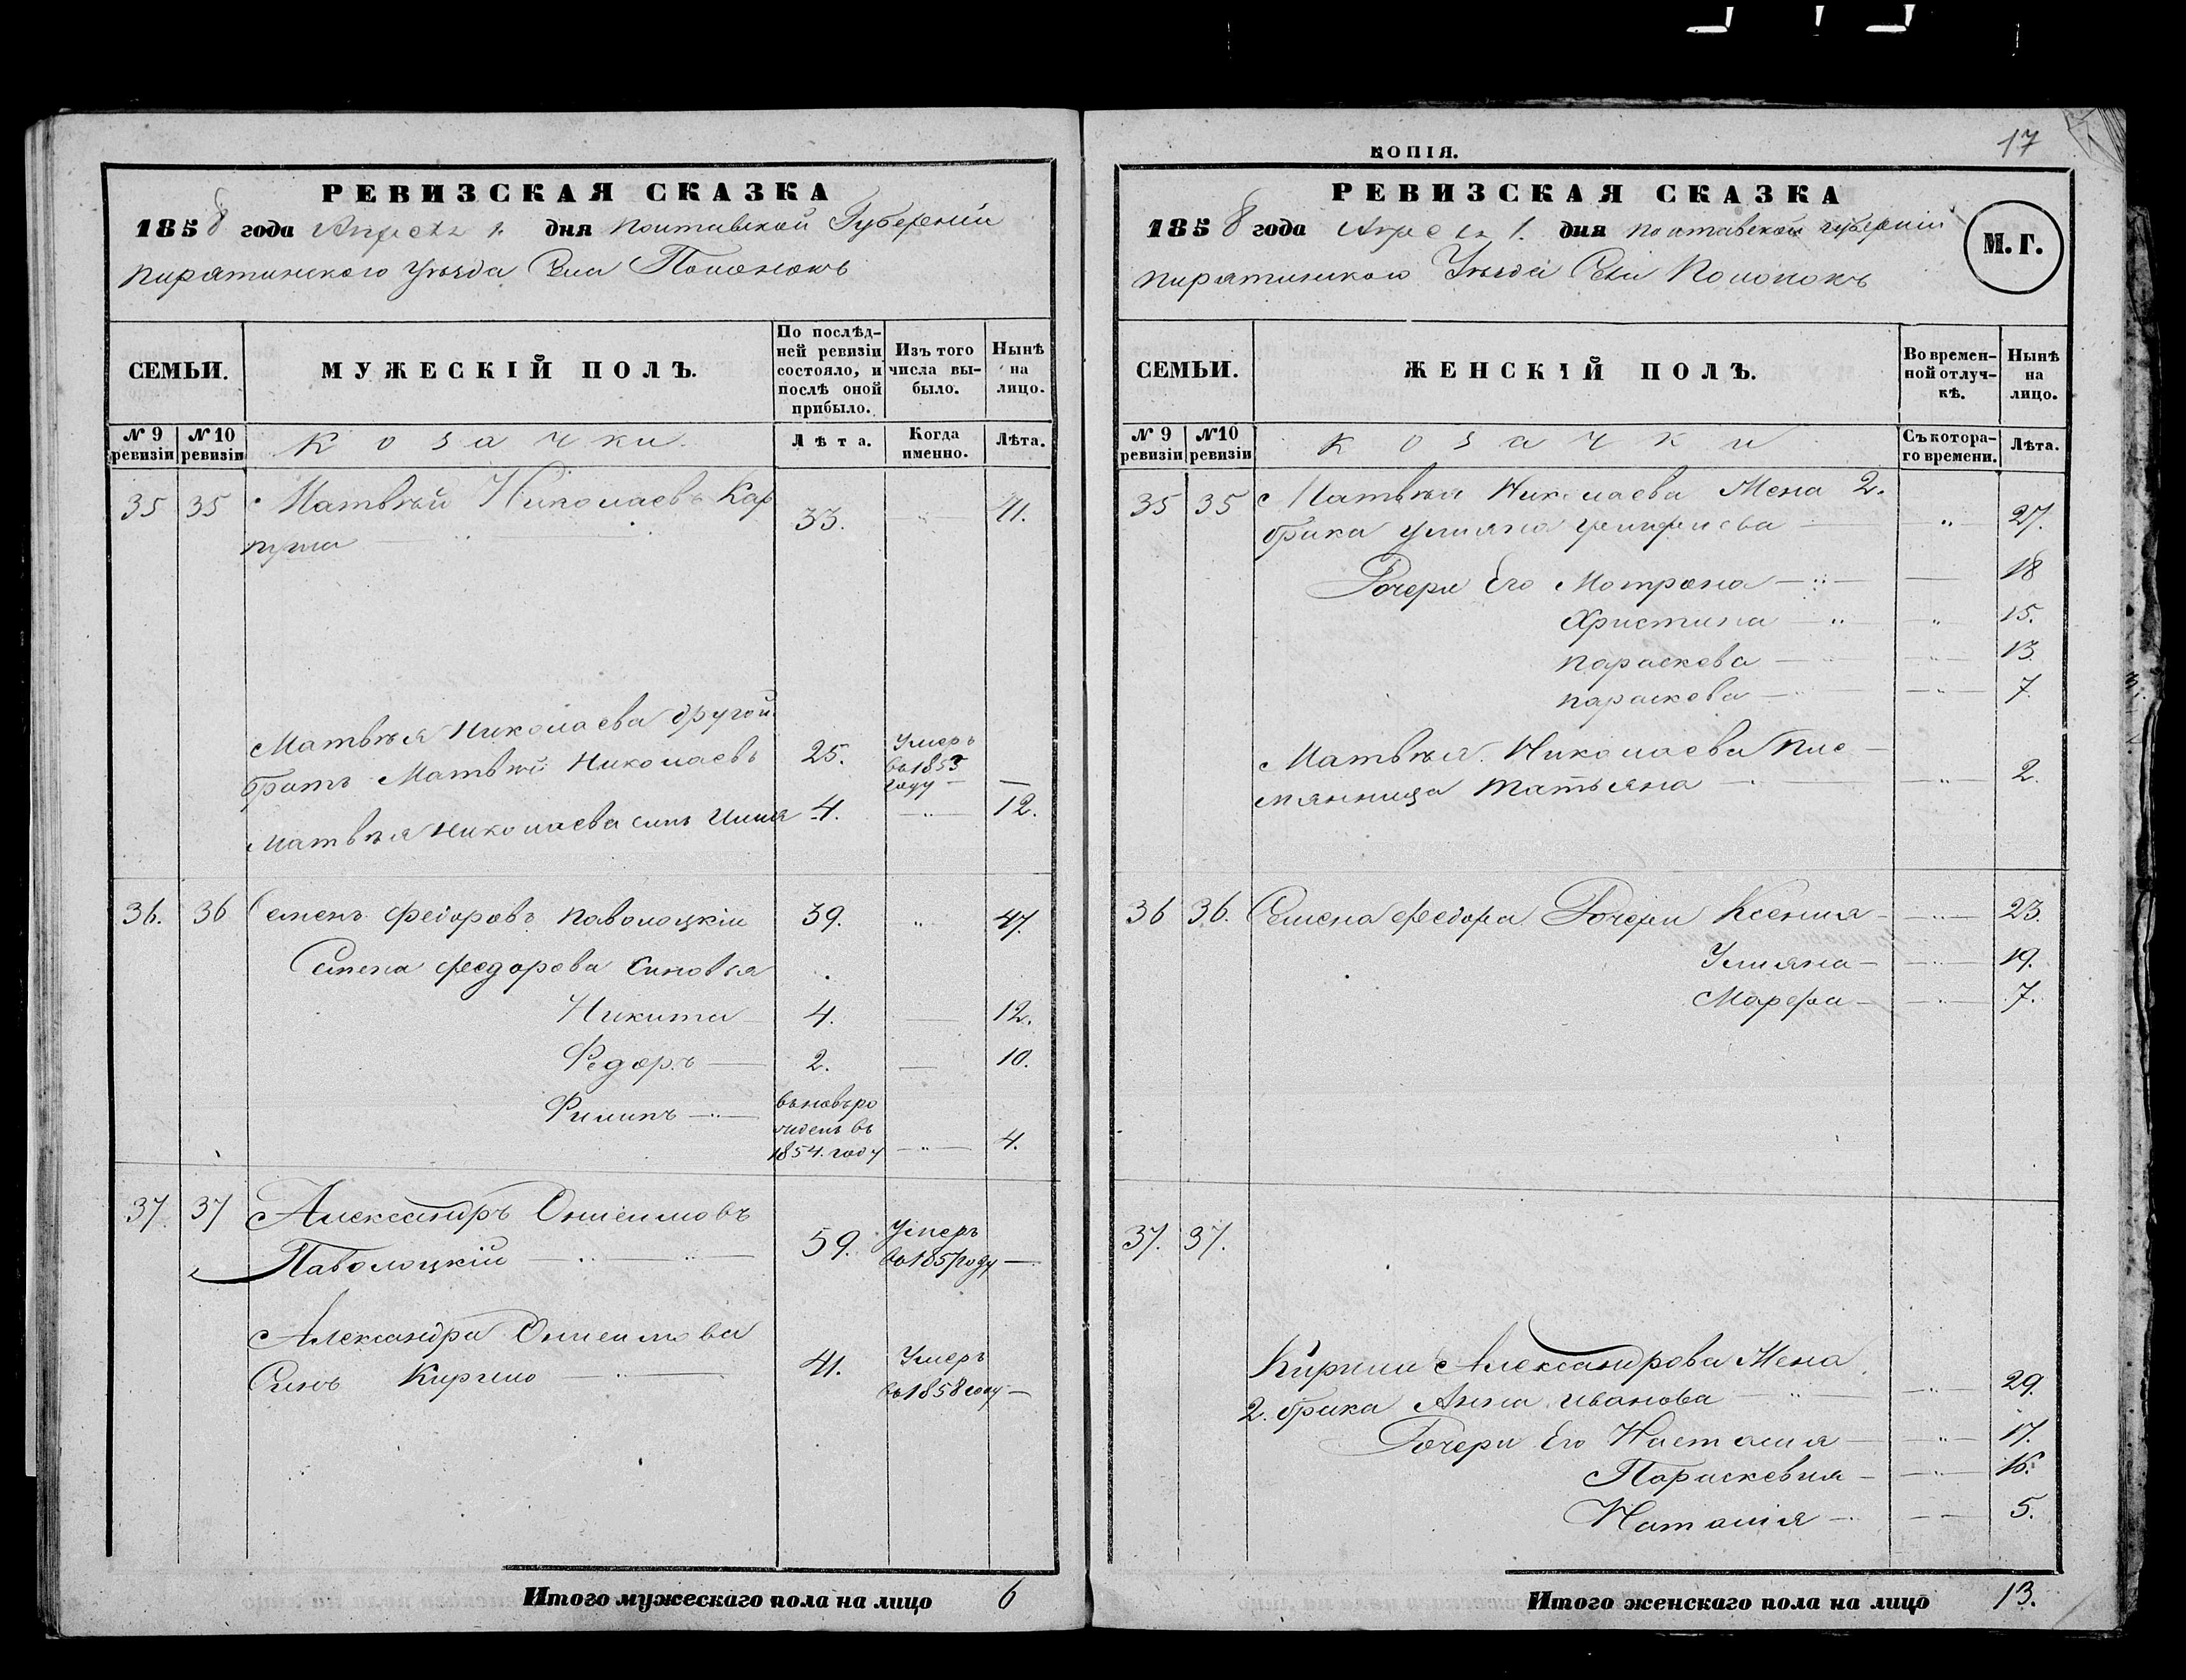 17
РЕВИЗСКАЯ СКАЗКА
1858 года Апреля 1. дня Полтавской Губернии
Пирятинского Уезда Села Пононокъ
СЕМЬИ.
МУЖЕСКІЙ ПОЛЪ.
По послѣд-
ней ревизіи
состояло, и
послѣ оной
прибыло.
Изъ того
числа вы-
было.
Нынѣ
на
лицо.
№ 9
ревизіи
№ 10
ревизіи
Козачки.
Лѣта.
Когда
именно.
Лѣта.
35 35 Матвѣй Николаевъ 33. 41.
Матвѣя Николаева другой
братъ Матвѣй Николаевъ 25. Умеръ
въ 1853
году —
Матвѣя Николаева синъ Илия 4. 12.
36. 36 Семенъ Федоровъ Паволоцкій 39. 47.
Семена Федорова Синовья
Никита 4. 12.
Федоръ 2. 10.
Филипъ вновъ ро
жденъ въ
1854. году 4.
37. 37 Александръ Онисимовъ
Паволоцкій 59. Умеръ
въ 1857 году —
Александра Онисимова
Синъ Кирило 41. Умеръ
въ 1858 году —
Итого мужескаго пола на лицо 6
КОПІЯ.
РЕВИЗСКАЯ СКАЗКА
1858 года Апреля 1. дня Полтавской губерніи
Пирятинского Уезда Села Пононокъ
М. Г.
СЕМЬИ.
ЖЕНСКІЙ ПОЛЪ.
Во времен-
ной отлуч-
кѣ.
Нынѣ
на
лицо.
№ 9
ревизіи
№10
ревизіи
Козачки
Съ котора-
го времени.
Лѣта.
35 35 Матвѣя Николаева Жена 2.
брака Улияна 27.
Дочери Его Мотрона 18
Христина 15.
Параскева 13
Параскева 7.
Матвѣя Николаева Пле-
мянница Татьяна 2.
36 36. Семена Федора Дочери Ксения 23.
Улияна 19.
Марфа 7.
37. 37.
Кирила Александрова Жена
2. брака Анна Иванова 29.
Дочери Его Наталия 17.
Параскевия 16.
Наталия 5.
Итого женскаго пола на лицо 13.